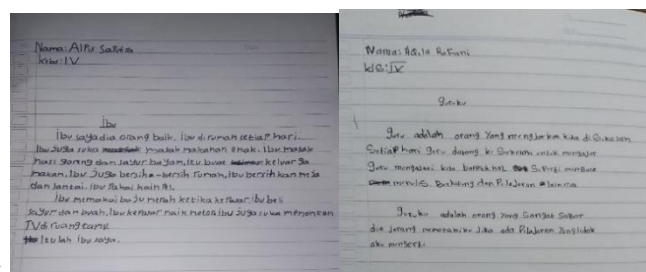 Nama: Alfis Saputra
Kelas: IV
Ibu
Ibu saya dia orang baik. Ibu di rumah setiap hari.
Ibu Juga suka masak makanan enak. Ibu masak
nasi goreng dan sayur bayam, itu buat keluarga
makan. Ibu Juga bersihe-bersih rumah, Ibu bersihkan meja
dan lantai. Ibu Pakai kain
Ibu memakai baju merah ketika keluar. Ibu beli
sayur dan buah, Ibu keluar naik motor Ibu Juga suka menonton
TV di ruang tamu.
Itulah Ibu saya.
Nama: Aqila
Kls: IV
guruku
guru adalah orang yang mengajarkan kita di Sekolah
Setiap hari guru datang ke Sekolah untuk mengajar
guru mengajari kita banyak hal Seperti membaca
menulis. Berhitung dan Pelajaran lainnya
guruku adalah orang yang Sangat Sabar
dia Jarang memarahiku Jika ada Pelajaran yang tidak
aku mengerti.